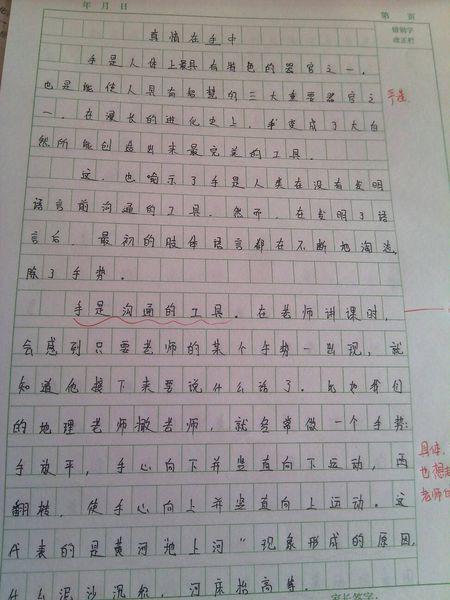 年 月 日
第 页
错别字
改正栏
真情在手中
手是人体上最具有特色的器官之一,
也是能使人具有智慧的三大重要器官之
一.在漫长的进化史上,手变成了大自
然所能创造出来最完美的工具.
这,也喻示了手是人类在没有发明
语言前沟通的工具.然而,在发明了语
言后,最初的肢体语言都在不断地淘汰,
除了手势。
手是沟通的工具.在老师讲课时,
会感到只要老师的某个手势一出现,就
知道他接下来要说什么话了.比如我们
的地理老师撤老师,就经常做一个手势:
手放平,手心向下并竖直向下运动,再
翻转,使手心向上并竖直向上运动.这
代表的是黄河"地上河"现象形成的原因,
什么泥沙沉积,河床抬高等.
具体.
也想起
老师的
家长签字: